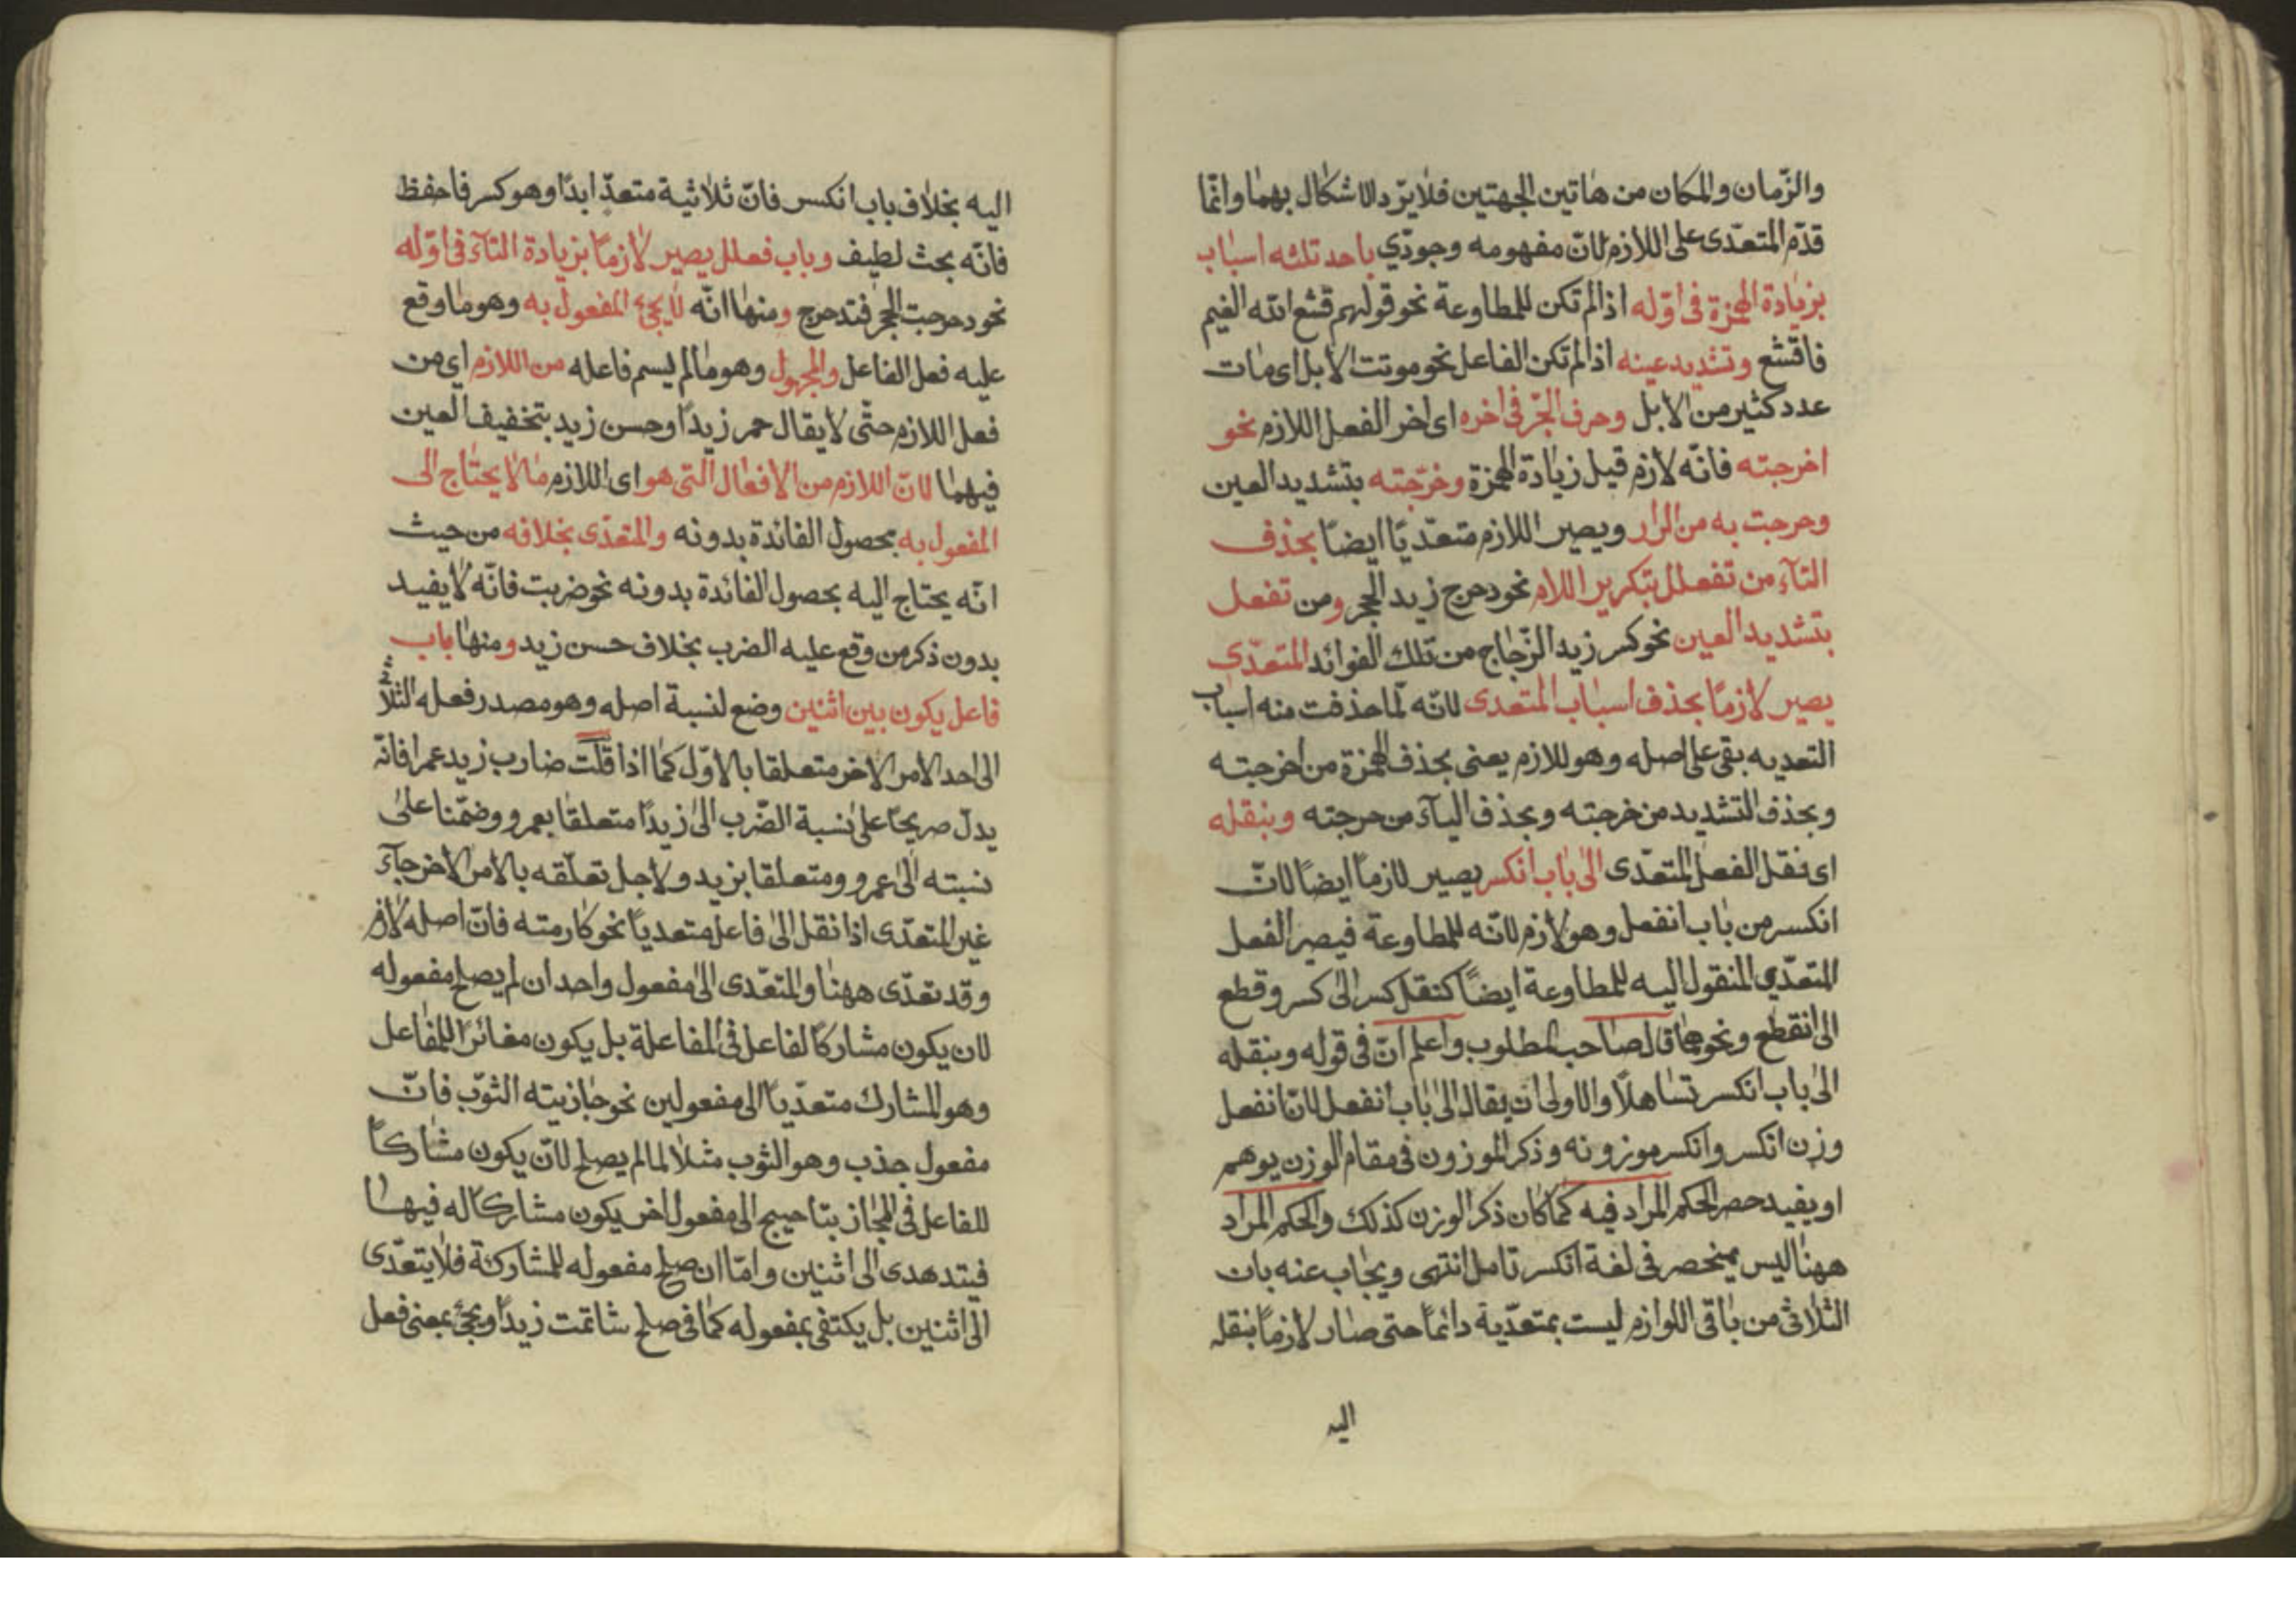 والزّمان والمكان من هاتين الجهتين فلا يرّد الاشكال بهما وانّما
قدّم المتعدّى على اللازم لانّ مفهومه وجودّي باحد ثلثه اسباب
بزيادة الهمزة فى اوّله اذا لم تكن للمطاوعة نحو قولهم قشع الله الغيم
فاقشع وتشديد عينه اذا لم تكن الفاعل نحو موتت الابل اى مات
عدد كثير من الابل وحرف الجرّ فى اخره اى اخر الفعل اللازم نحو
اخرجته فانّه لازم قبل زيادة الهمزة وخرّجته بتشديد العين
وحرجت به من الرار ويصير اللازم متعدّيًا ايضًا بحذف
التآء من تفعلل بتكرير اللام نحو دحرج زيد الحجر ومن تفعل
بتشديد العين نحو كسر زيد الزّجاج من تلك الفوائد المتعدّي
يصير لازمًا بحذف اسباب المتعدى لانّه لّما حذفت منه اسباب
التعديه بقى على اصله وهو للازم يعنى بحذف الهمزة من اخرجته
وبحذف التشديد من خرجته وبحذف اليآء من حرجته وبنقله
اى نقل الفعل المتعدّى الى باب انكسر يصير لازمًا ايضًا لانّ
انكسر من باب انفعل وهو لازم لانّه للمطاوعة فيصير الفعل
المتعدّي المنقول اليه للمطاوعة ايضًا كنقل كسر الى كسر وقطع
الى انقطع ونحوهما قال صاحب المطلوب واعلم انّ فى قوله وبنقله
الى باب انكسر تساهلًا والاولى ان يقال الى باب انفعل لانّ انفعل
وزن انكسر وانكسر موزونه وذكر الموزون فى مقام الوزن يوهم
او يفيد حصر الحكم المراد فيه كما كان ذكر الوزن كذلك والحكم المراد
ههنا ليس بمنحصر فى لغة انكسر تامل انتهى ويجاب عنه بان
الثلاثى من باقى اللوازم ليست بمتعدّية دائمًا حتى صار لازمًا بنقله
اليه
اليه بخلاف باب انكسر فانّ ثلاثية متعدّ ابدًا وهو كسر فاحفظ
فانّه بحث لطيف وباب فعلل يصير لازمًا بزيادة التآء فى اوّله
نحو دحرجت الحجر فتدحرج ومنها انّه لا يجئ المفعول به وهو ما وقع
عليه فعل الفاعل والمجهول وهو ما لم يسم فاعله من اللازم اى من
فعل اللازم حتّى لا يقال حمر زيدًا وحسن زيد بتخفيف العين
فيهما لانّ اللازم من الافعال التى هو اى اللازم ما لا يحتاج الى
المفعول به بحصول الفائدة بدونه والمتعدّى بخلافه من حيث
انّه يحتاج اليه بحصول الفائدة بدونه نحو ضربت فانّه لا يفيد
بدون ذكر من وقع عليه الضرب بخلاف حسن زيد ومنها باب
فاعل يكون بين اثنين وضع لنسبة اصله وهو مصدر فعله الثلاثى
الى احد الامر الاخر متعلقا بالاوّل كما اذا قلت ضارب زيد عمرا فانّه
يدلّ صريحًا على نسبة الضّرب الى زيدًا متعلقًا بعمرو وضمّنا على
نسبته الى عمرو ومتعلقا بزيد ولاجل تعلّقه بالامر الاخر جآء
غير المتعدّى اذا نقل الى فاعل متعديًا نحو كارمته فانّ اصله لازم
وقد تعدّى ههنا والمتعّدى الى مفعول واحد ان لم يصلح مفعوله
لان يكون مشاركًا لفاعل فى المفاعلة بل يكون مغائرًا للمفاعل
وهو المشارك متعدّيًا الى مفعولين نحو جازبته الثوّب فانّ
مفعول جذب وهو الثوب مثلًا لما لم يصلح لانّ يكون مشاركًا
للفاعل فى المجازبتا حيبج الى مفعول اخر يكون مشاركا له فيها
فيتدهدى الى اثنين وامّا ان صلح مفعوله للمشاركة فلا يتعدّى
الى اثنين بل يكتفى بمفعوله كما فى صلح شاتمت زيدًا ويجئ بمعنى فعل